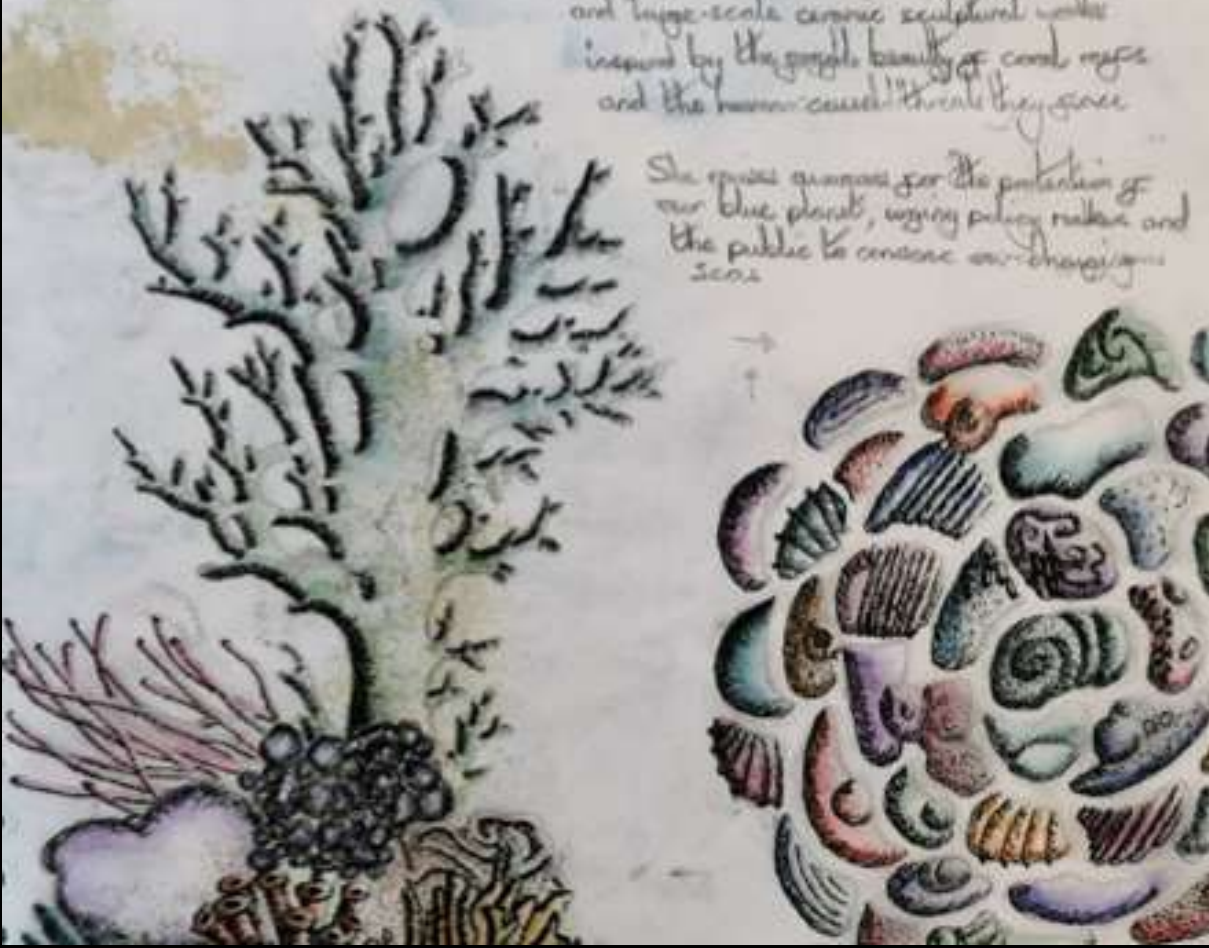 and large-scale ceramic sculptural works
inspired by the fragile beauty of coral reefs
and the human-caused threats they
She for the protection of
our blue planet, urging policy makers and
the public to conserve our changing
seas